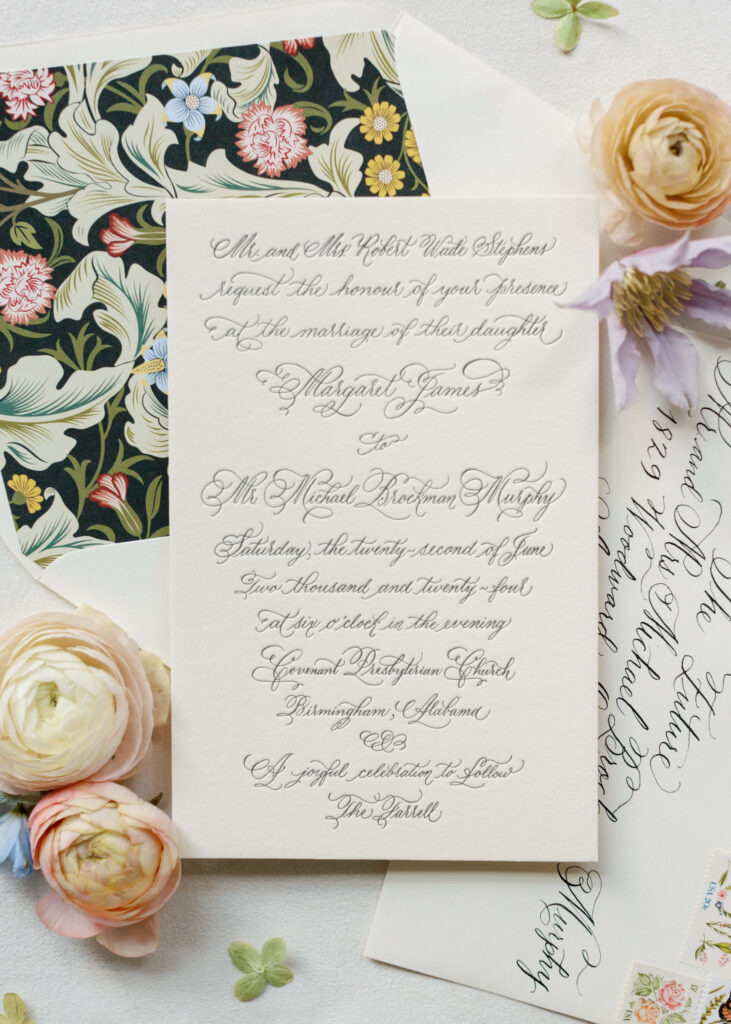 Mr. and Mrs. Robert Waite Stephens
request the honour of your presence
at the marriage of their daughter
Margaret James
to
Mr. Michael Brockman Murphy
Saturday, the twenty-second of June
Two thousand and twenty-four
at six o'clock in the evening
Covenant Presbyterian Church
Birmingham, Alabama
A joyful celebration to follow
The Farrell
The Future
Mr. and Mrs. Michael
Murphy
1829 Woodward
USA 20c
USA